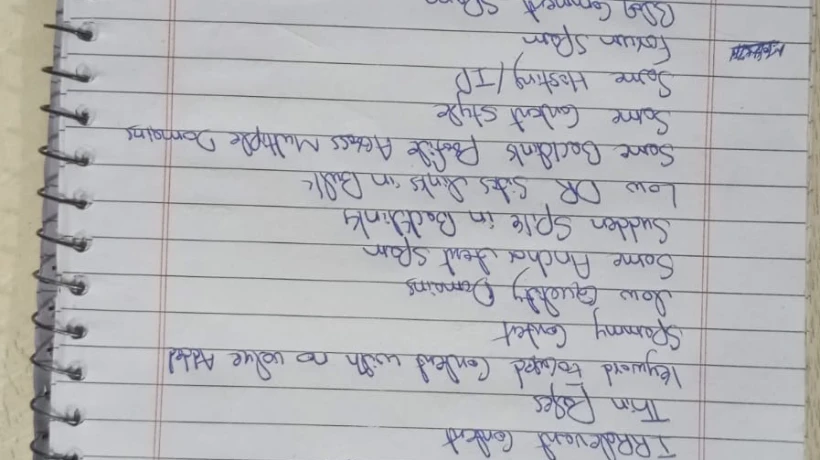 IRRelevant Content
Thin Pages
Keyword Focused Content with no value Added
Spammy Content
Low Quality Domains
Same Anchor text Spam
Sudden Spike in Backlinks
Low DR Sites Links in Bulk
Same Backlink Profile Across Multiple Domains
Same Content Style
Same Hosting/IP
Forum Spam
Blog Comment Spam